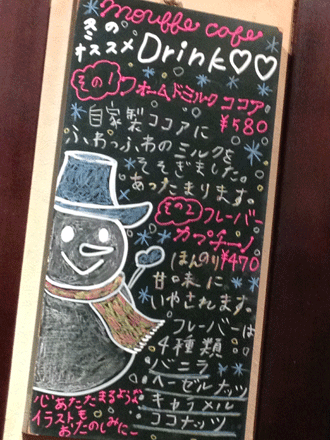 mouffe cafe
冬の
オススメ Drink♡♡
その1 フォームドミルクココア
¥580
自家製ココアに
ふわっふわのミルクを
そそぎました。
あったまります。
その2 フレーバー
カプチーノ
¥470
ほんのり
甘味に
いやされます。
フレーバーは
4種類
バニラ
ヘーゼルナッツ
キャラメル
ココナッツ
心あたたまるような
イラストも
おたのしみに〜